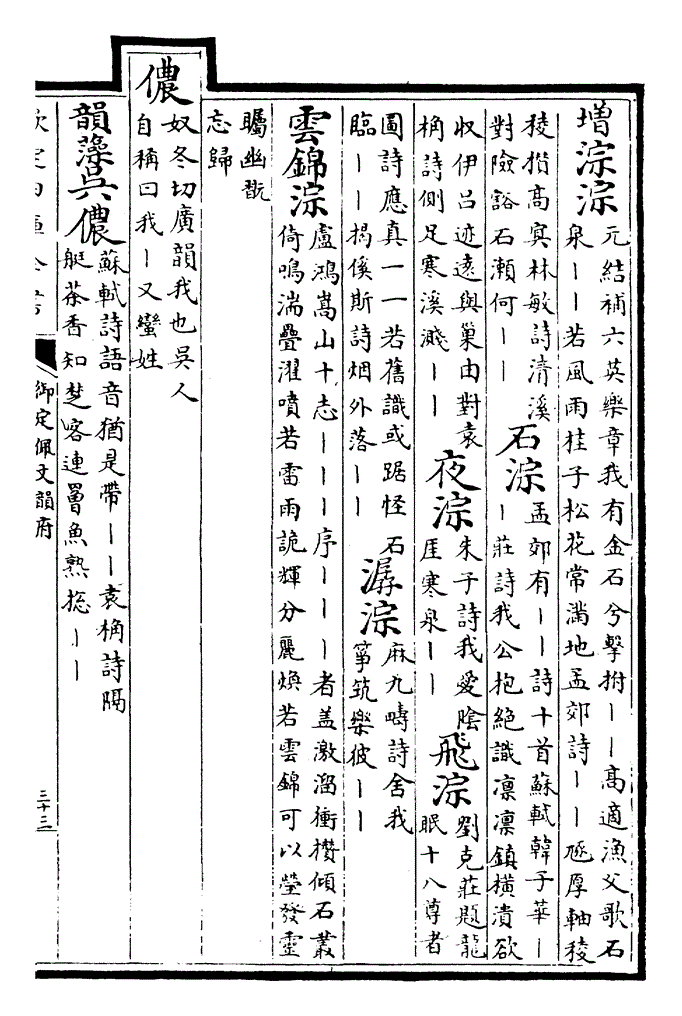 增淙淙
元結補六英樂章我有金石兮擊拊丨丨高適漁父歌石
泉丨丨若風雨桂子松花常滿地孟郊詩丨丨厚軸稜
稜揩高㝠林敏詩清溪
對險谿石瀬何丨丨
石淙
孟郊有丨丨詩十首蘇軾韓子華丨
丨莊詩我公抱絶識凛凛鎮橫潰欲
収伊吕迹遠與巢由對袁
桷詩側足寒溪濺丨丨
夜淙
朱子詩我愛陰
厓寒泉丨丨
飛淙
劉克莊題龍
眠十八尊者
圖詩應真一一若舊識或踞怪石
臨丨丨揭傒斯詩烟外落丨丨
潺淙
麻九疇詩舍我
箏筑樂彼丨丨
雲錦淙
盧鴻嵩山十志丨丨丨序丨丨丨者盖激溜衝攢傾石叢
倚鳴湍疊濯噴若雷雨詭輝分麗煥若雲錦可以瑩發靈
矚幽翫
忘歸
儂
奴冬切廣韻我也吳人
自稱曰我丨又蠻姓
韻藻吳儂
蘇軾詩語音猶是帶丨丨袁桷詩隔
艇茶香知楚客連罾魚熟㧾丨丨
欽定四庫全書
御定佩文韻府
三十三